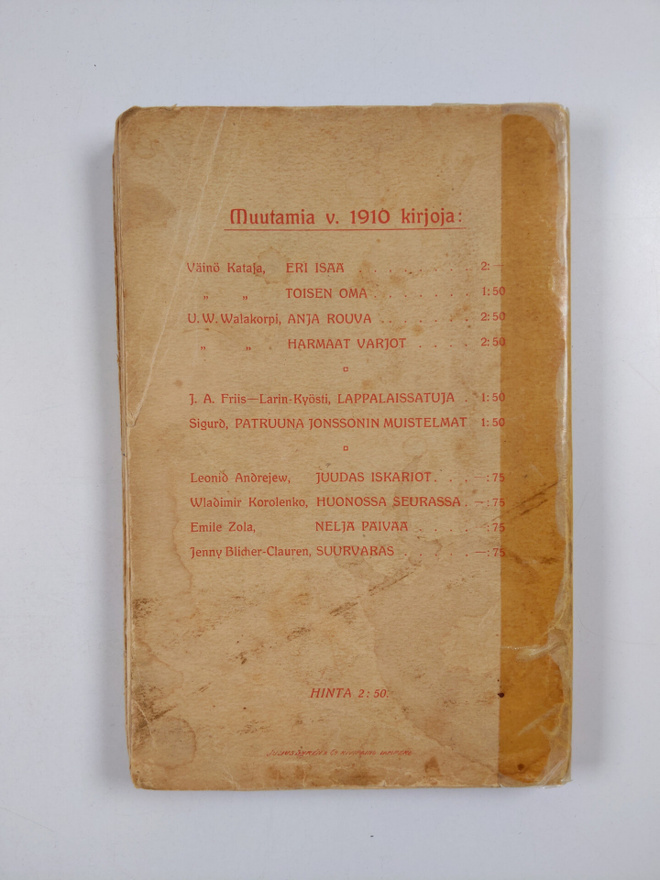 Muutamia v. 1910 kirjoja:
Väinö Kataja, ERI ISAA . . . . . . . . . . 2: —
„ „ TOISEN OMA . . . . . . . 1: 50
U. W. Walakorpi, ANJA ROUVA . . . . . . . 2: 50
„ „ HARMAAT VARJOT . . . . 2: 50
¤
J. A. Friis—Larin-Kyösti, LAPPALAISSATUJA . 1: 50
Sigurd, PATRUUNA JONSSONIN MUISTELMAT 1: 50
¤
Leonid Andrejew, JUUDAS ISKARIOT . . . —: 75
Wladimir Korolenko, HUONOSSA SEURASSA . —: 75
Emile Zola, NELJÄ PÄIVÄÄ . . . . . —: 75
Jenny Blicher-Clauren, SUURVARAS . . . . . —: 75
HINTA 2: 50.